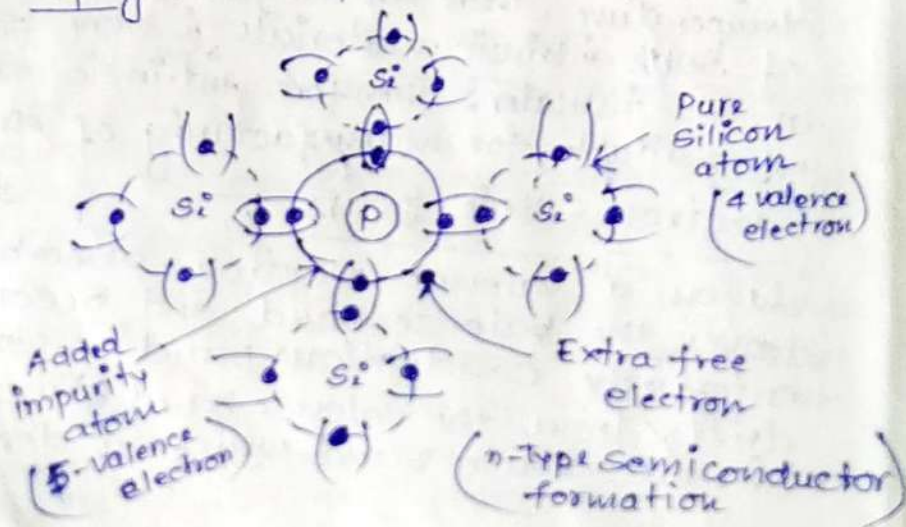 Si
Pure
Silicon
atom
(4 valence
electron)
Si
P
Si
Added
impurity
atom
(5-valence
electron)
Si
Extra free
electron
(n-Type semiconductor
formation)